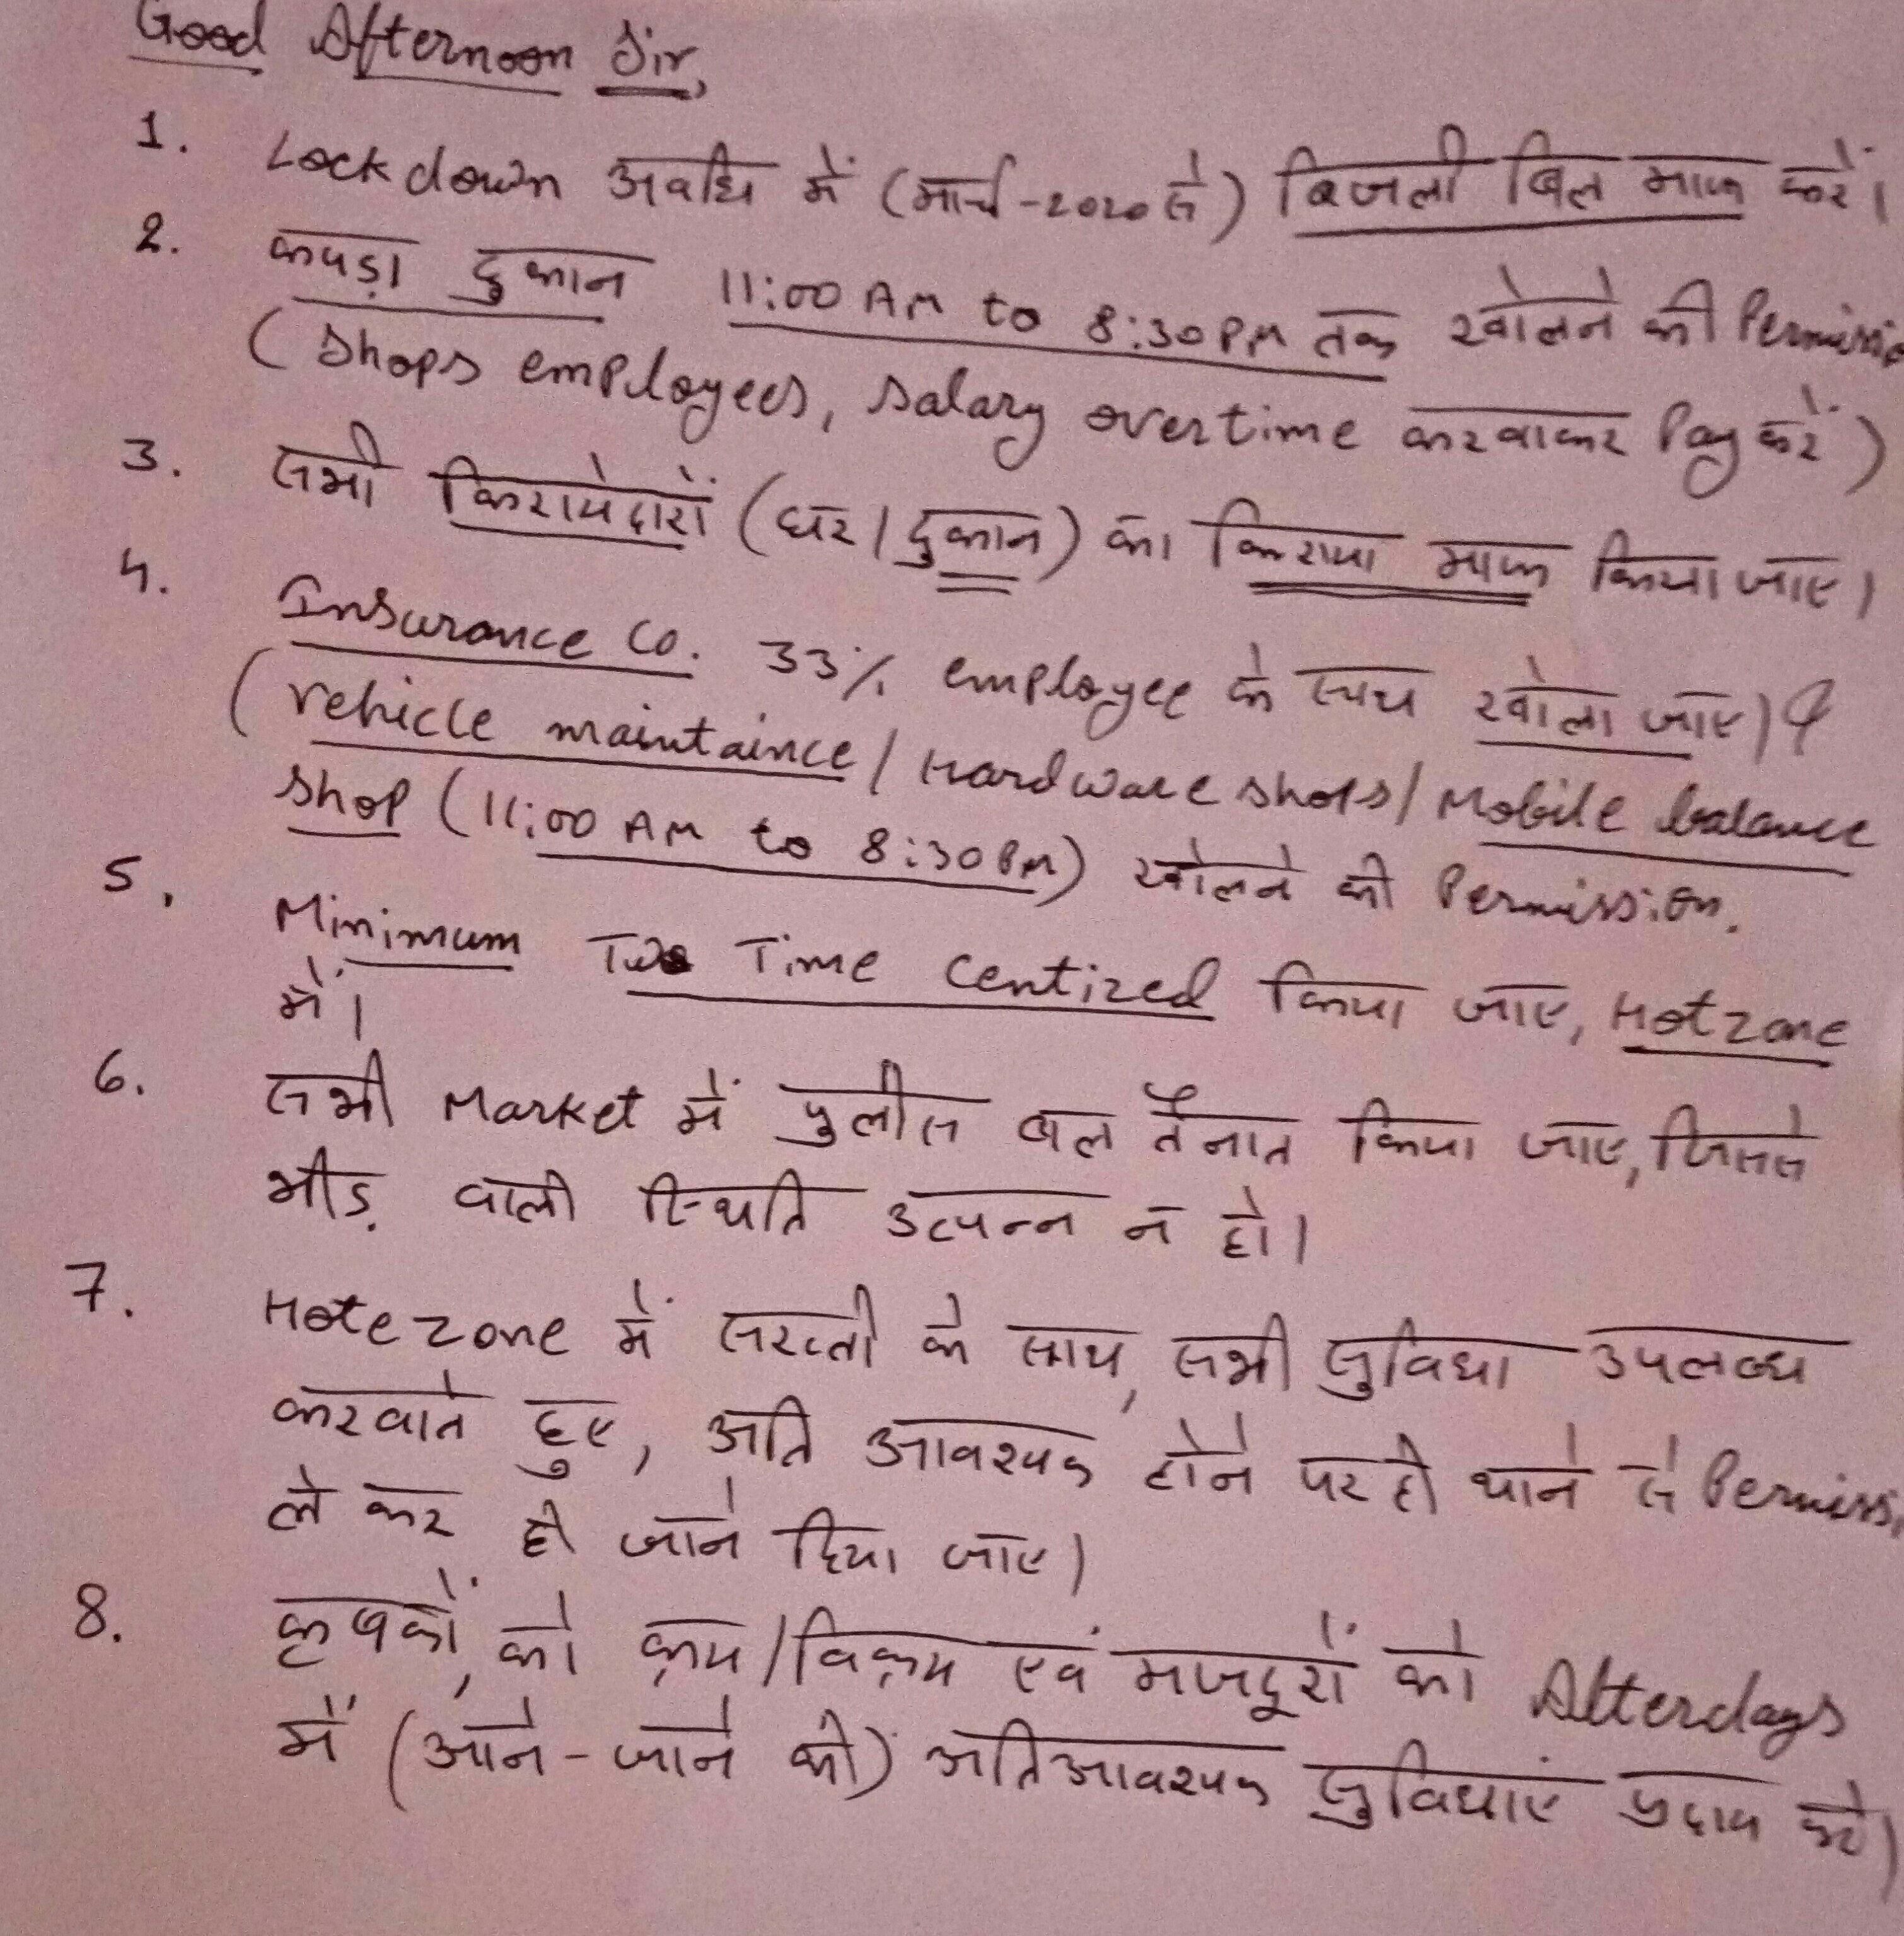 Good Afternoon Sir,
1. Lockdown अवधि में (मार्च-2020 से) बिजली बिल माफ करें।
2. कपड़ा दुकान 11:00 AM to 8:30 PM तक खोलने की Permissio
(Shops employees, salary overtime करवाकर Pay करें)
3. सभी किरायेदारों (घर/दुकान) का किराया माफ किया जाए।
4. Insurance Co. 33% employee के साथ खोला जाए। &
(vehicle maintaince/Hardware shops/Mobile balance
shop (11:00 AM to 8:30 PM) खोलने की Permission.
5. Minimum Two Time Centized किया जाए, Hotzone
में।
6. सभी Market में पुलीस बल तैनात किया जाए, जिससे
भीड़ वाली स्थिति उत्पन्न न हो।
7. Hote zone में सख्ती के साथ, सभी सुविधा उपलब्ध
करवाते हुए, अति आवश्यक होने पर ही थाने से Permiss
ले कर ही जाने दिया जाए।
8. कृषकों, को क्रय/विक्रय एवं मजदूरों को Alterdays
में (आने-जाने की) अतिआवश्यक सुविधाएं प्रदाय करे।